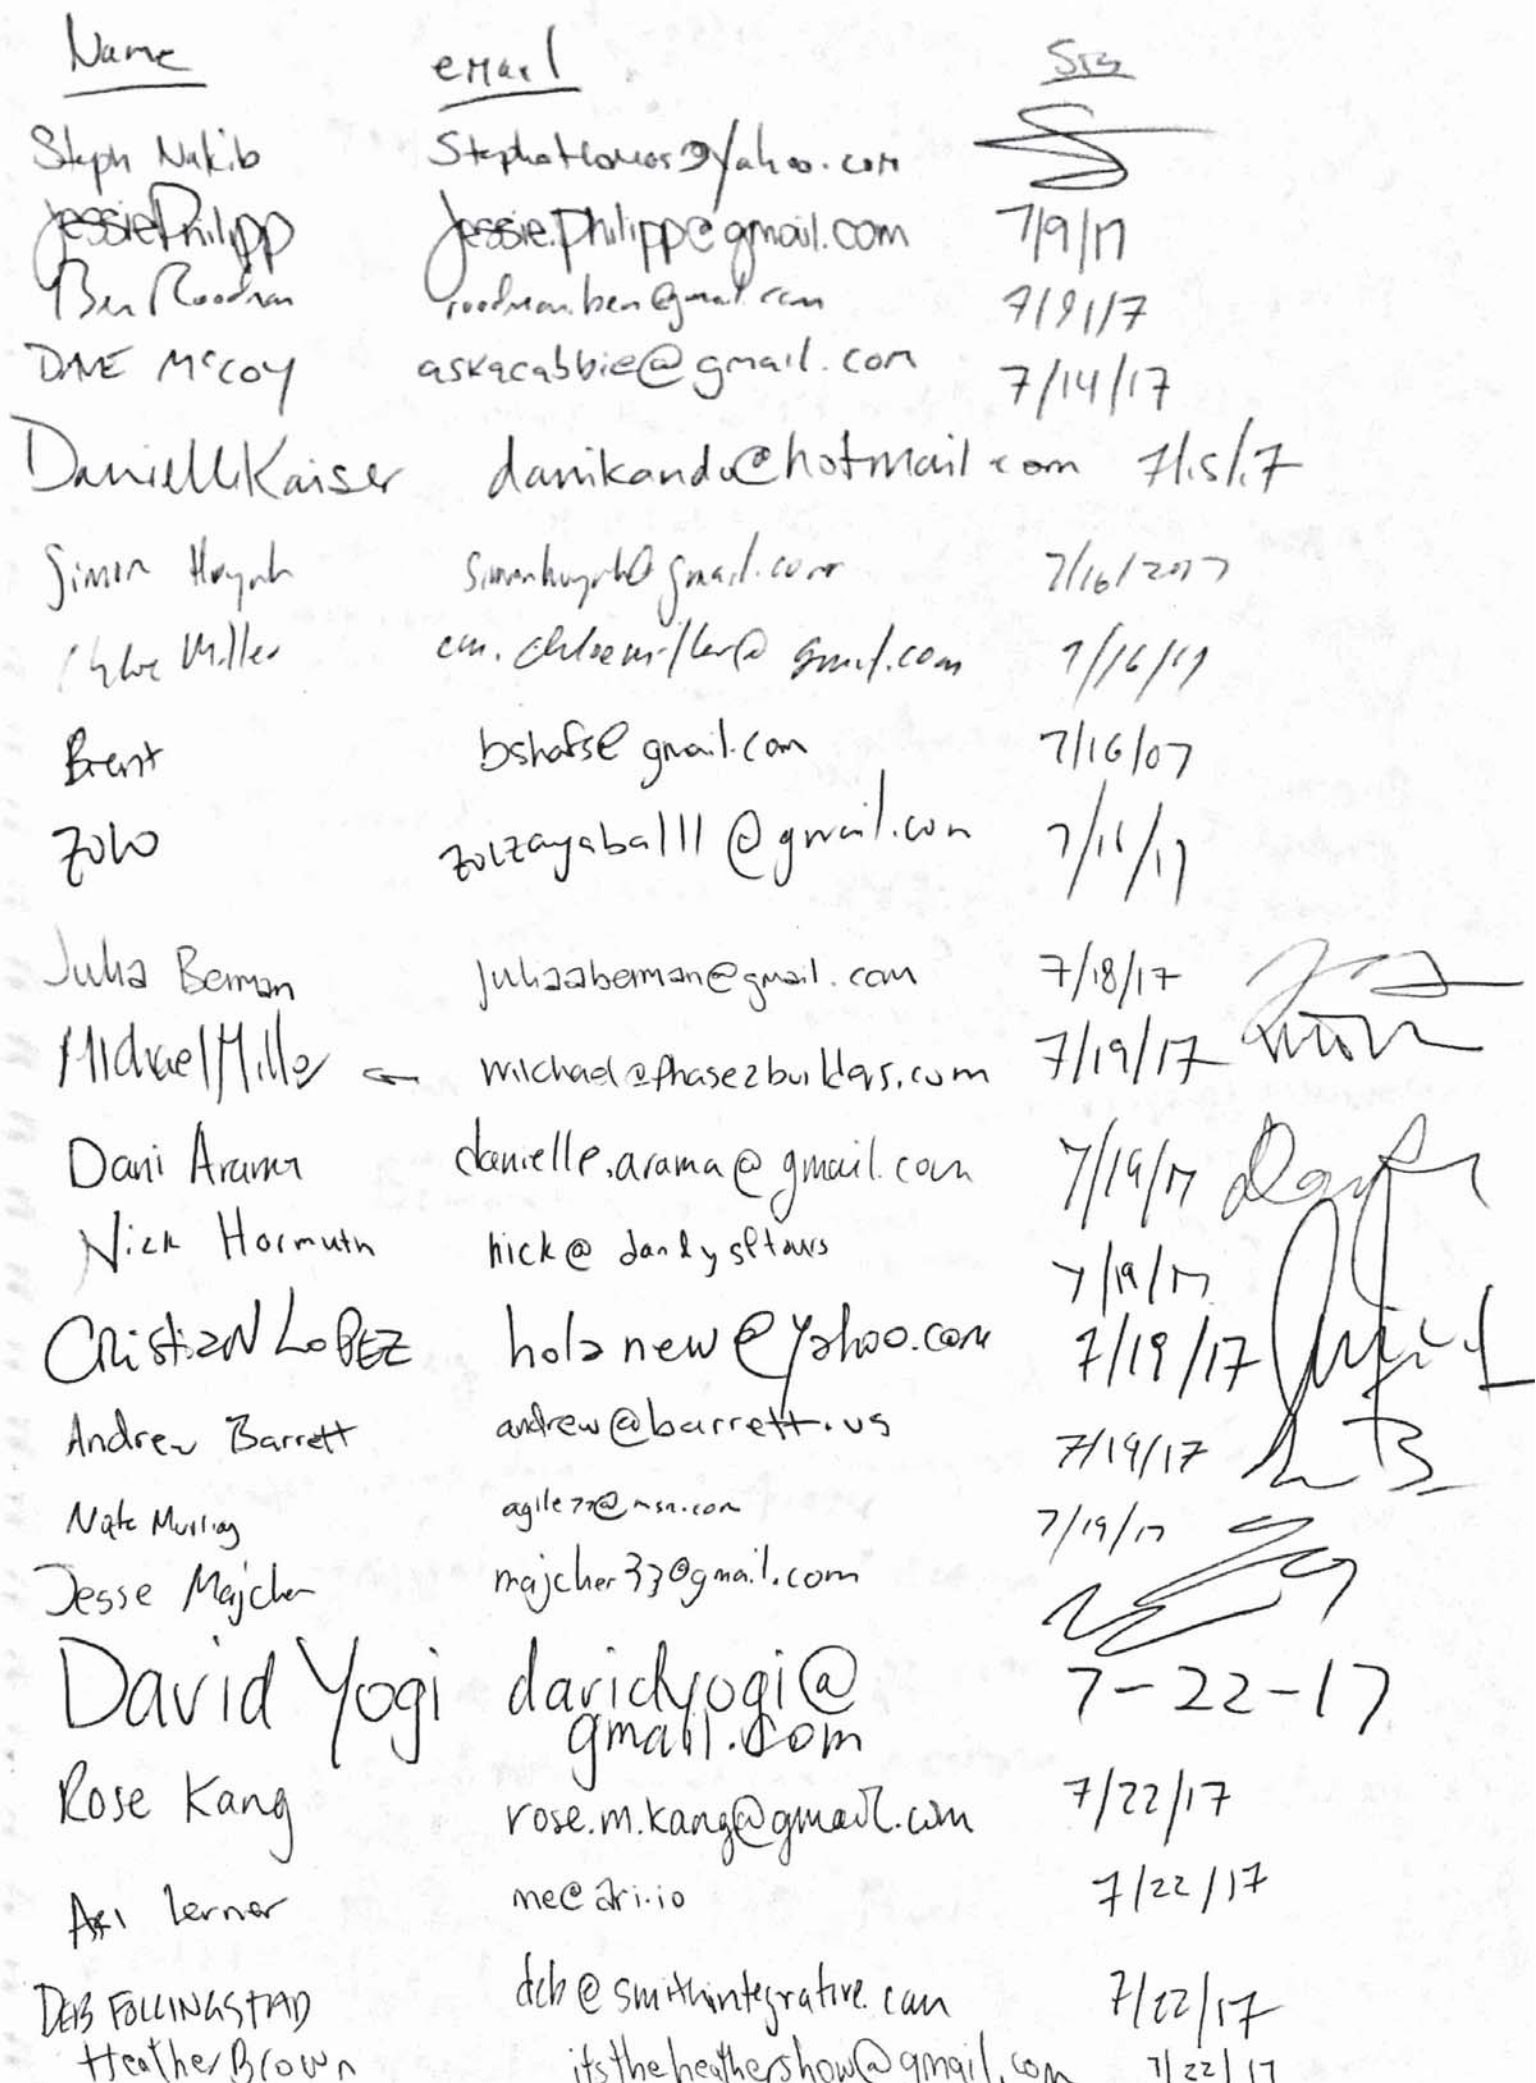 Name email Sig
Steph Nakib
Jessie Philipp jessie.philipp@gmail.com 7/9/17
Ben Roodman roodman.ben@gmail.com 7/9/17
DAVE McCOY askacabbie@gmail.com 7/14/17
Danielle Kaiser danikandu@hotmail.com 7/15/17
Simon Huynh simonhuynh@gmail.com 7/16/2017
Chloe Miller cm.chloemiller@gmail.com 7/16/17
Brent bshafs@gmail.com 7/16/07
Zolo zolzayabal11@gmail.com 7/16/17
Julia Berman juliaaberman@gmail.com 7/18/17
Michael Miller michael@phase2builders.com 7/19/17
Dani Arama danielle.arama@gmail.com 7/19/17
Nick Hormuth nick@dandysftours 7/19/17
CRistiaN LoPEZ holanew@yahoo.com 7/19/17
Andrew Barrett andrew@barrett.us 7/19/17
Nate Murray agile77@msn.com 7/19/17
Jesse Majcher majcher33@gmail.com
David Yogi davidyogi@ 7-22-17
gmail.com
Rose Kang rose.m.kang@gmail.com 7/22/17
Ari Lerner me@ari.io 7/22/17
DEB FOLLINGSTAD deb@smithintegrative.com 7/22/17
Heather Brown itstheheathershow@gmail.com 7/22/17